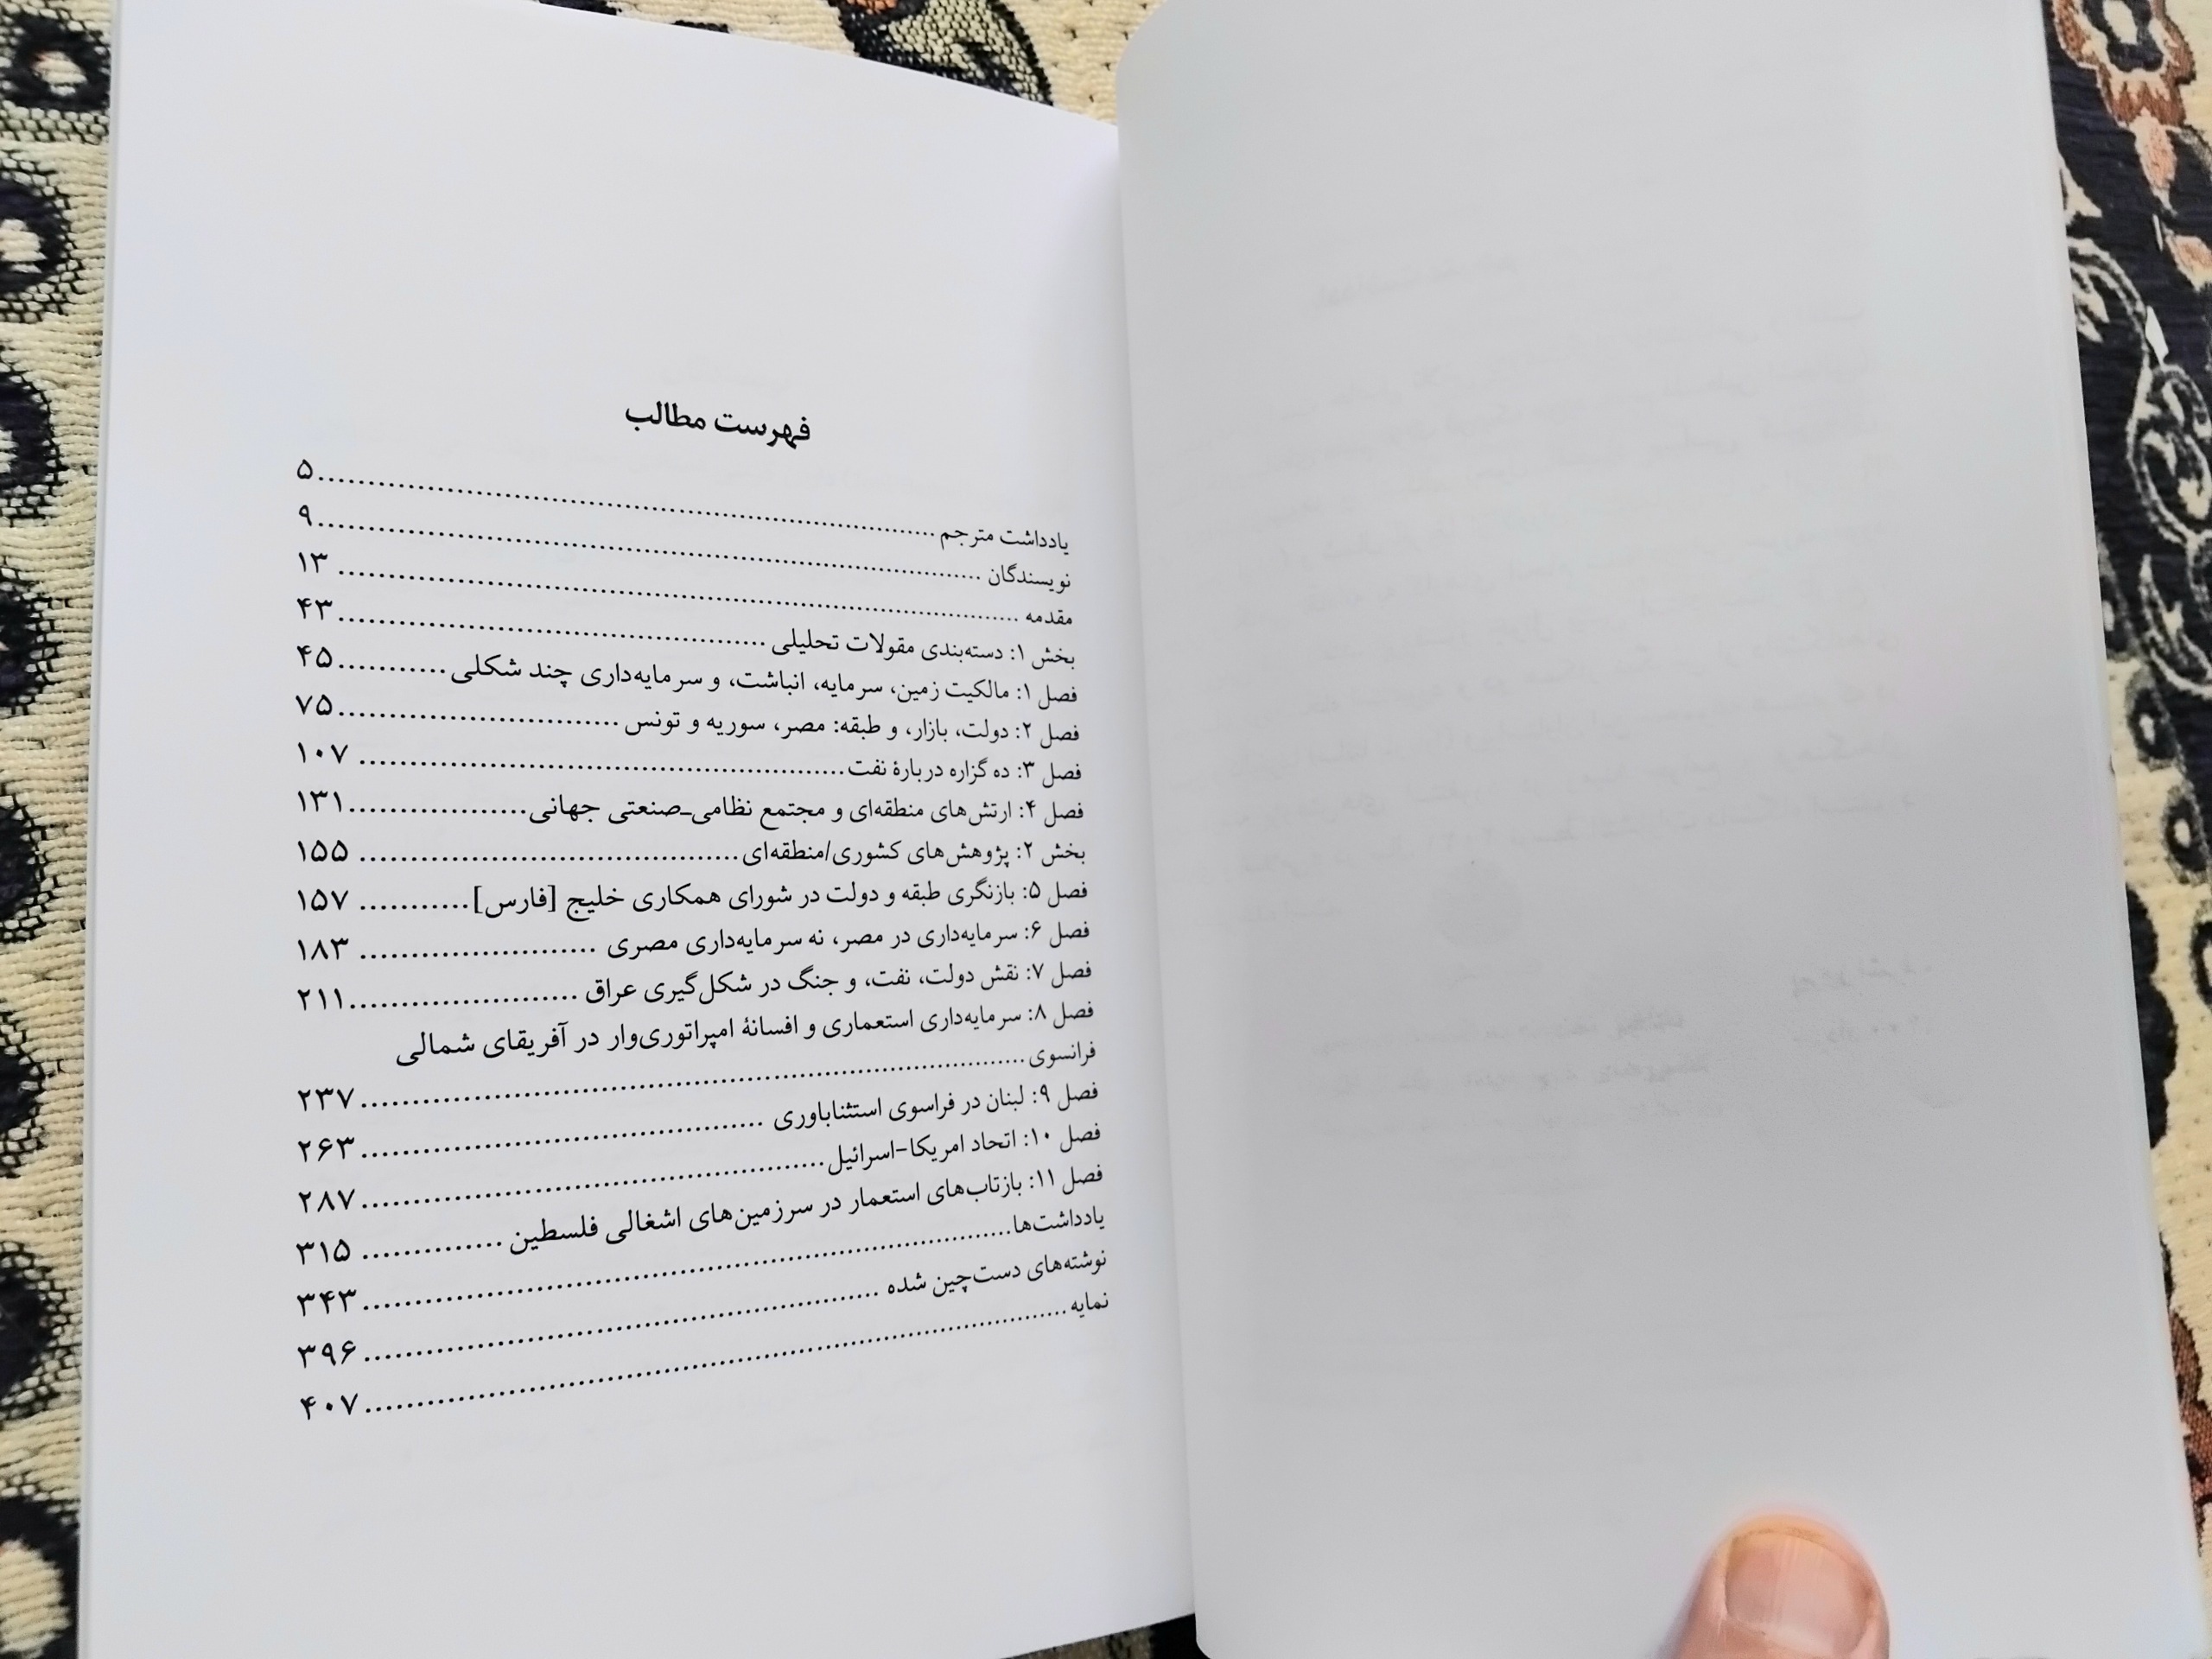 فهرست مطالب
یادداشت مترجم ........ ۵
نویسندگان ........ ۹
مقدمه ........ ۱۳
بخش ۱: دسته‌بندی مقولات تحلیلی ........ ۴۳
فصل ۱: مالکیت زمین، سرمایه، انباشت، و سرمایه‌داری چند شکلی ........ ۴۵
فصل ۲: دولت، بازار، و طبقه: مصر، سوریه و تونس ........ ۷۵
فصل ۳: ده گزاره دربارهٔ نفت ........ ۱۰۷
فصل ۴: ارتش‌های منطقه‌ای و مجتمع نظامی-صنعتی جهانی ........ ۱۳۱
بخش ۲: پژوهش‌های کشوری/منطقه‌ای ........ ۱۵۵
فصل ۵: بازنگری طبقه و دولت در شورای همکاری خلیج [فارس] ........ ۱۵۷
فصل ۶: سرمایه‌داری در مصر، نه سرمایه‌داری مصری ........ ۱۸۳
فصل ۷: نقش دولت، نفت، و جنگ در شکل‌گیری عراق ........ ۲۱۱
فصل ۸: سرمایه‌داری استعماری و افسانهٔ امپراتوری‌وار در آفریقای شمالی
فرانسوی ........ ۲۳۷
فصل ۹: لبنان در فراسوی استثناباوری ........ ۲۶۳
فصل ۱۰: اتحاد امریکا-اسرائیل ........ ۲۸۷
فصل ۱۱: بازتاب‌های استعمار در سرزمین‌های اشغالی فلسطین ........ ۳۱۵
یادداشت‌ها ........ ۳۴۳
نوشته‌های دست‌چین شده ........ ۳۹۶
نمایه ........ ۴۰۷